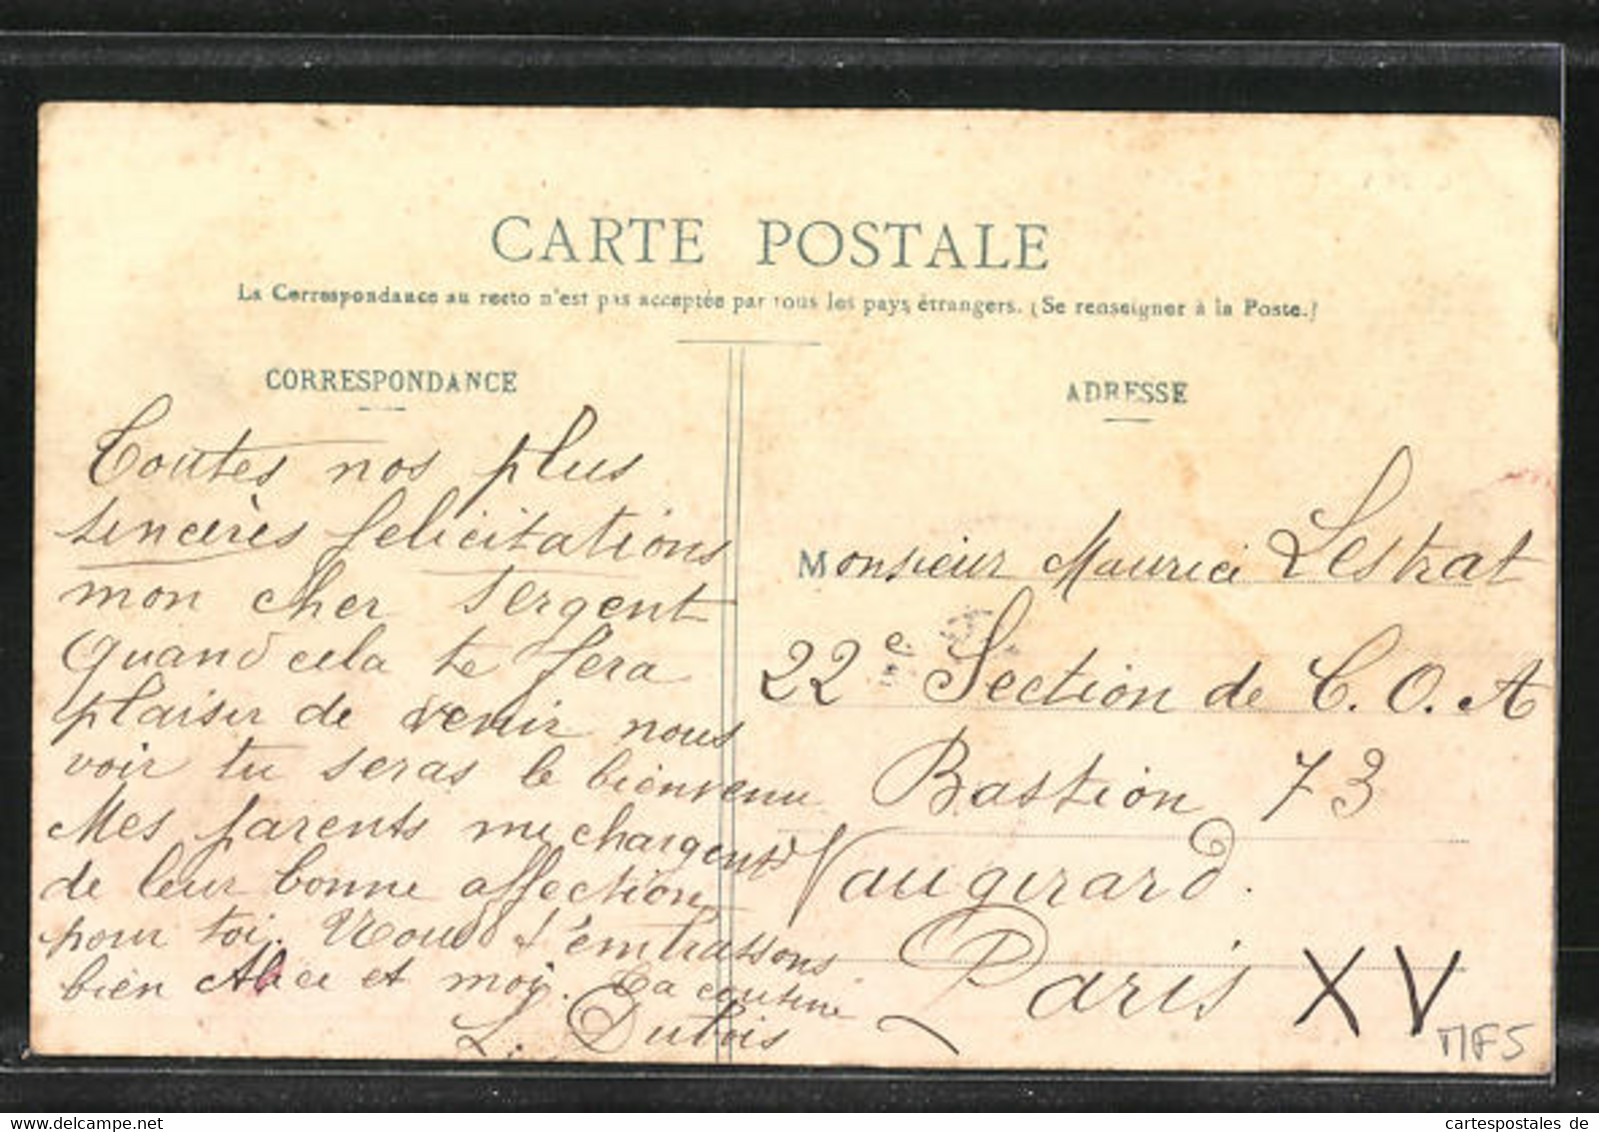 CARTE POSTALE
La Correspondance au recto n'est pas acceptée par tous les pays étrangers. (Se renseigner à la Poste.)
CORRESPONDANCE
Toutes nos plus
sincères felicitations
mon cher Sergent
Quand cela te fera
plaisir de venir nous
voir tu seras le bienvenu
Mes parents me chargent
de leur bonne affection
pour toi. Nous t'embrassons
bien Alice et moi. Ta cousine
L. Dubois
ADRESSE
Monsieur Maurice Lestrat
22e Section de C. O. A
Bastion 73
Vaugirard.
Paris XV
MF5
www.delcampe.net
cartespostales de